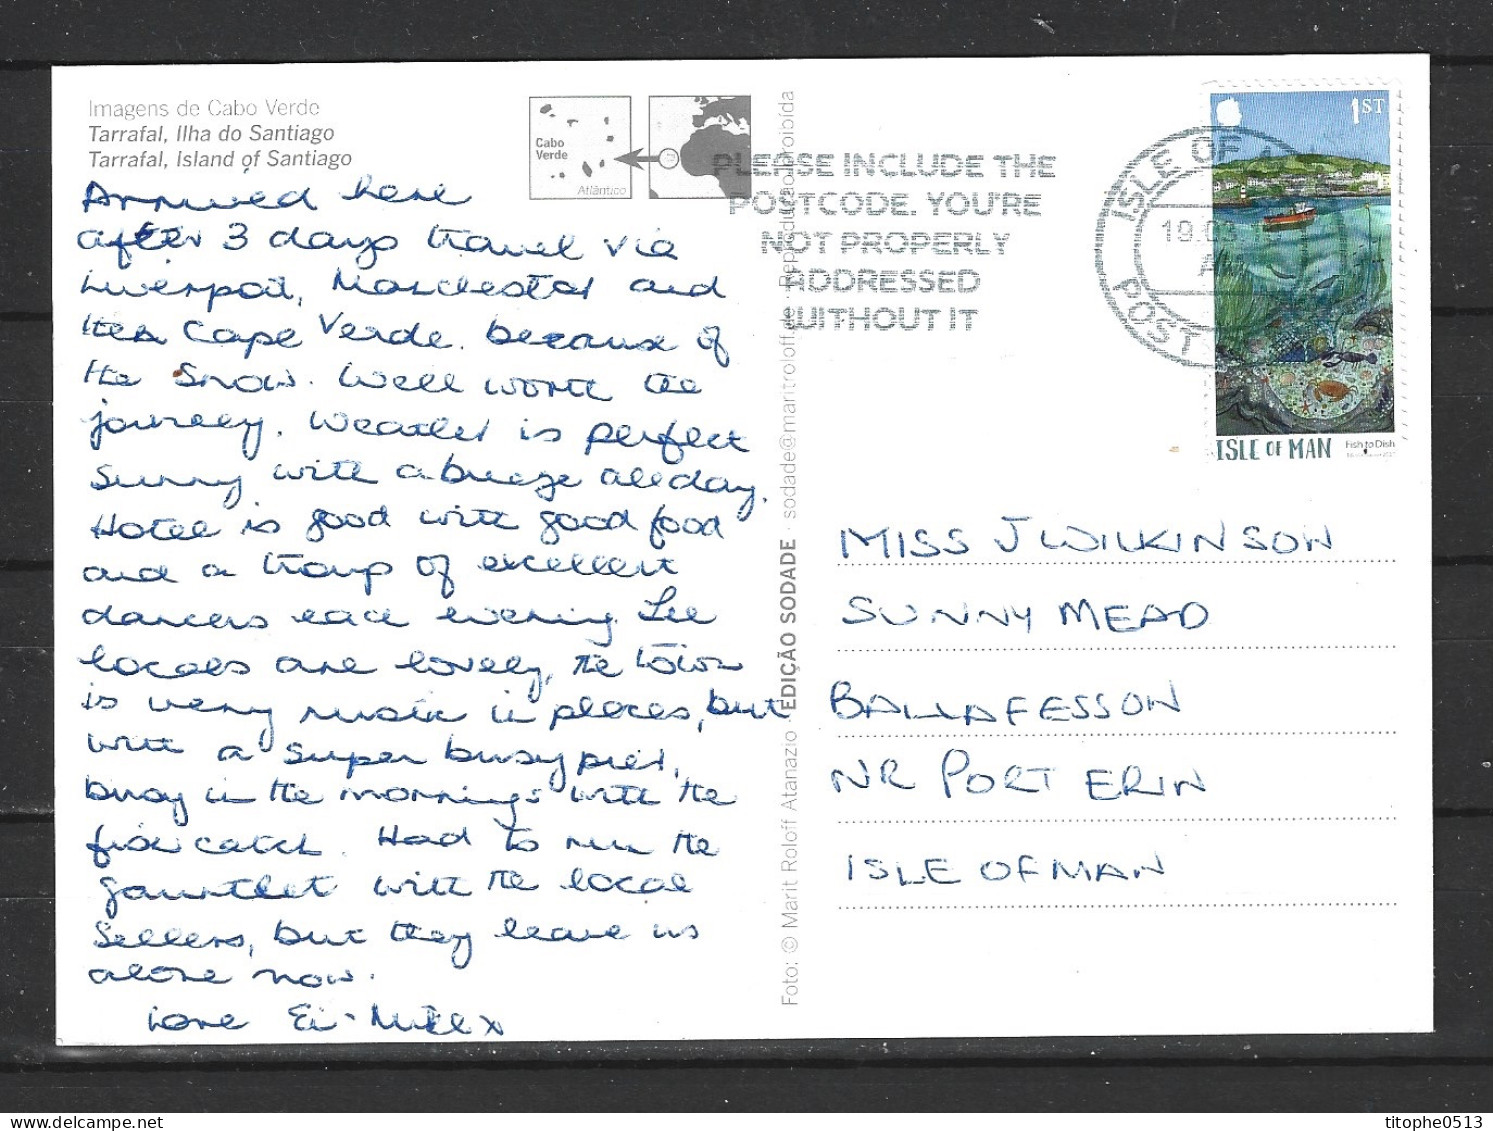 Imagens de Cabo Verde
Tarrafal, Ilha do Santiago
Tarrafal, Island of Santiago
Cabo
Verde
Atlântico
Arrived here
after 3 days travel via
Liverpool, Manchester and
then Cape Verde. because of
the Snow. Well worth the
journey. Weather is perfect
Sunny with a breeze all day.
Hotel is good with good food
and a troup of excellent
dancers each evening. The
locals are lovely, the town
is very in places, but
with a super busy pier,
busy in the mornings with the
fish catch. Had to run the
gauntlet with the local
Sellers, but they leave us
alone now.
Love
Foto: © Marit Roloff Atanazio · EDIÇÃO SODADE · sodade@maritroloff.de · Reprodução proibida
PLEASE INCLUDE THE
POSTCODE. YOU'RE
NOT PROPERLY
ADDRESSED
WITHOUT IT
ISLE OF
POST
1ST
ISLE OF MAN
Fish to Dish
MISS J WILKINSON
SUNNY MEAD
BALLAFESSON
NR PORT ERIN
ISLE OF MAN
titophe0513